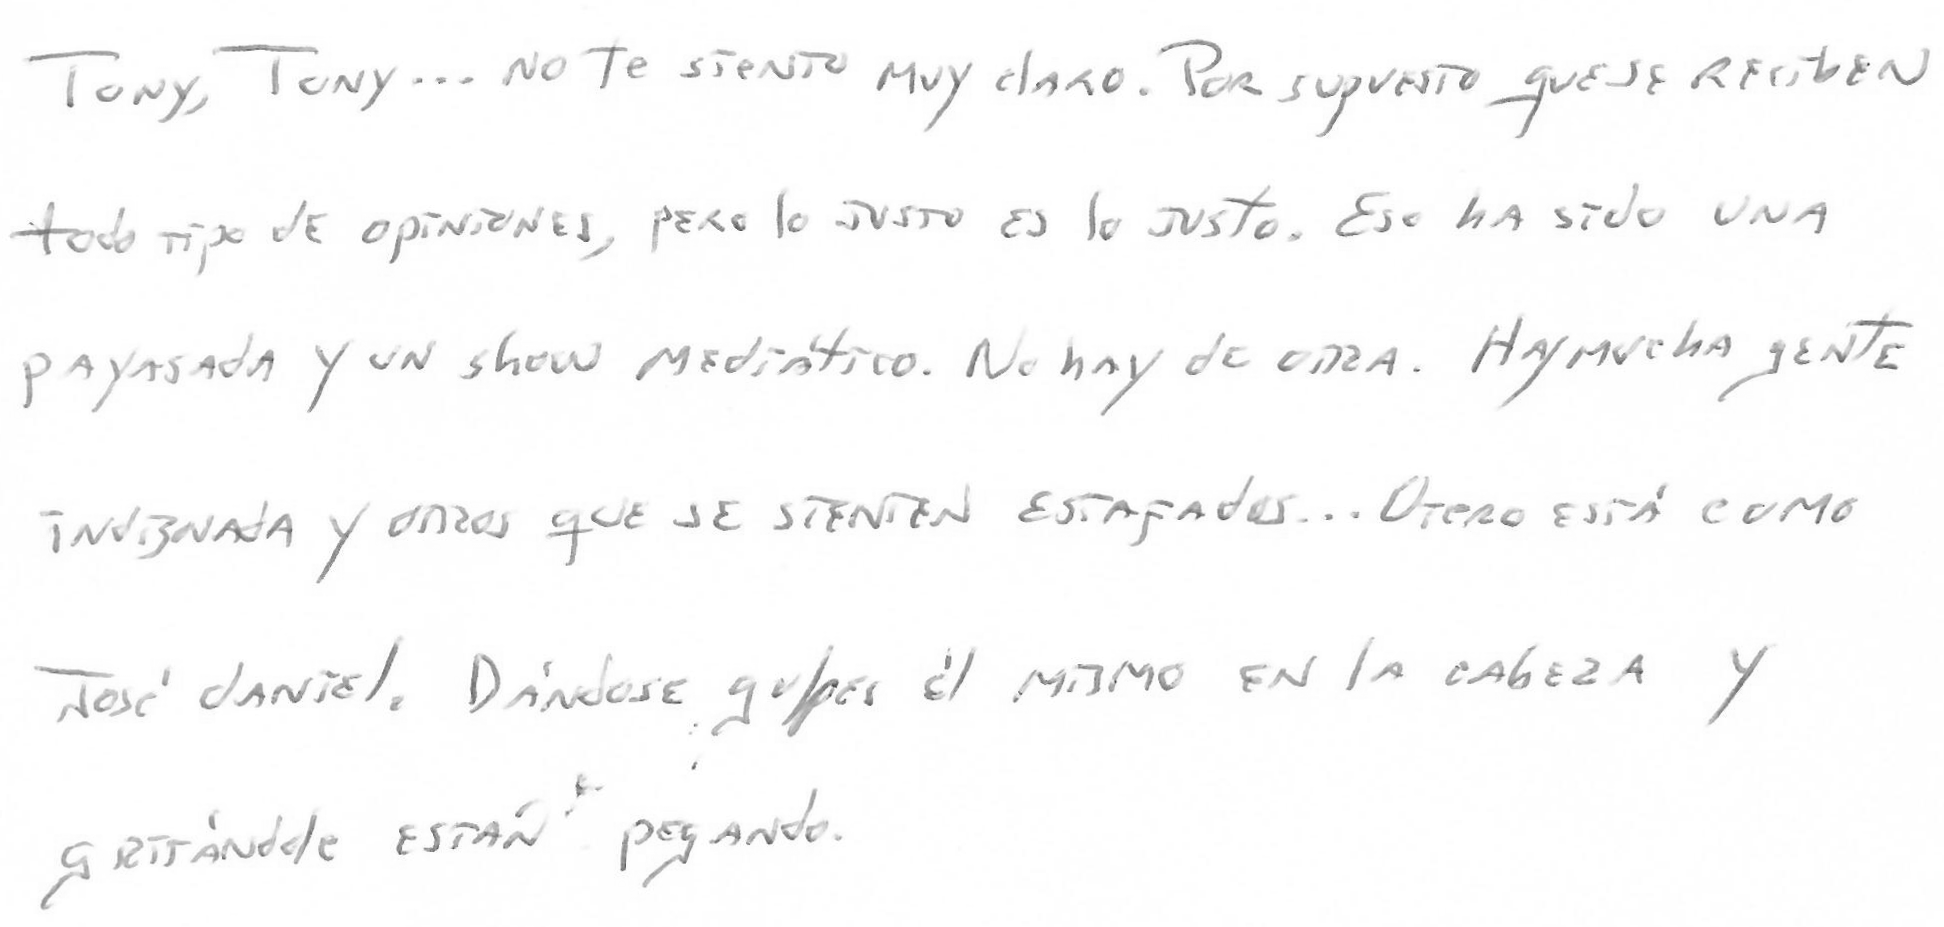 Tony, Tony... no te siento muy claro. Por supuesto que se reciben
todo tipo de opiniones, pero lo justo es lo justo. Eso ha sido una
payasada y un show mediático. No hay de otra. Hay mucha gente
indignada y otros que se sienten estafados... Otero está como
José daniel. Dándose golpes él mismo en la cabeza y
gritándole están pegando.